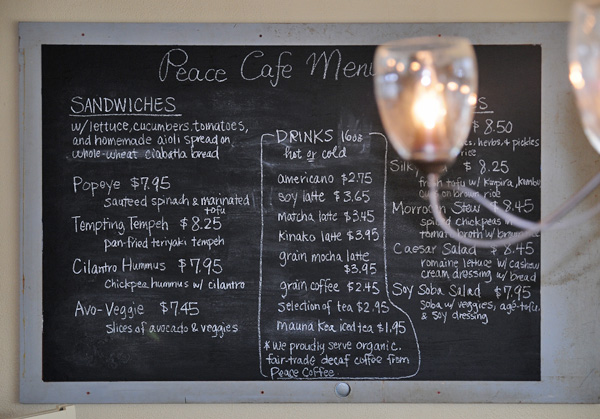 Peace Cafe Menu
SANDWICHES
w/lettuce, cucumbers, tomatoes,
and homemade aioli spread on
whole-wheat ciabatta bread
Popeye $7.95
sauteed spinach & marinated
tofu
Tempting Tempeh $8.25
pan-fried teriyaki tempeh
Cilantro Hummus $7.95
Chickpea hummus w/ cilantro
Avo-Veggie $7.45
slices of avocado & veggies
DRINKS 16oz
hot or cold
americano $2.75
soy latte $3.65
Matcha latte $3.45
Kinako latte $3.95
grain mocha latte
$3.95
grain coffee $2.45
selection of tea $2.95
mauna kea iced tea $1.95
*we proudly serve organic,
fair-trade decaf coffee from
Peace Coffee
$8.50
herbs, & pickles
rice
$8.25
fresh tofu w/ kinpira, kombu
on brown rice
Stew $8.45
spiced chickpeas
tomato broth w/
Caesar Salad $8.45
romaine lettuce w/ cashew
cream dressing w/ bread
Soy Soba Salad $7.95
soba w/ veggies, age-tofu,
& soy dressing